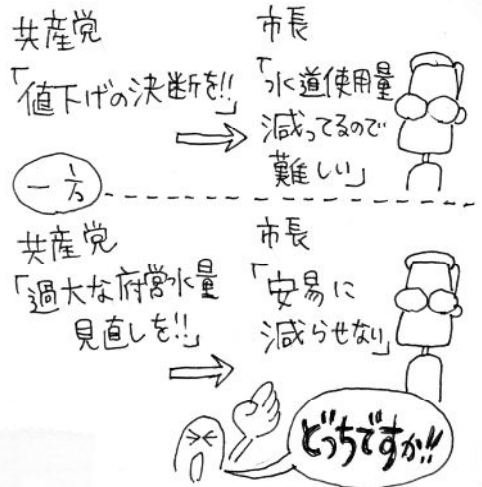 共産党
「値下げの決断を!!」
市長
「水道使用量
減ってるので
難しい」
一方
共産党
「過大な府営水量
見直しを!!」
市長
「安易に
減らせない」
どっちですか!!